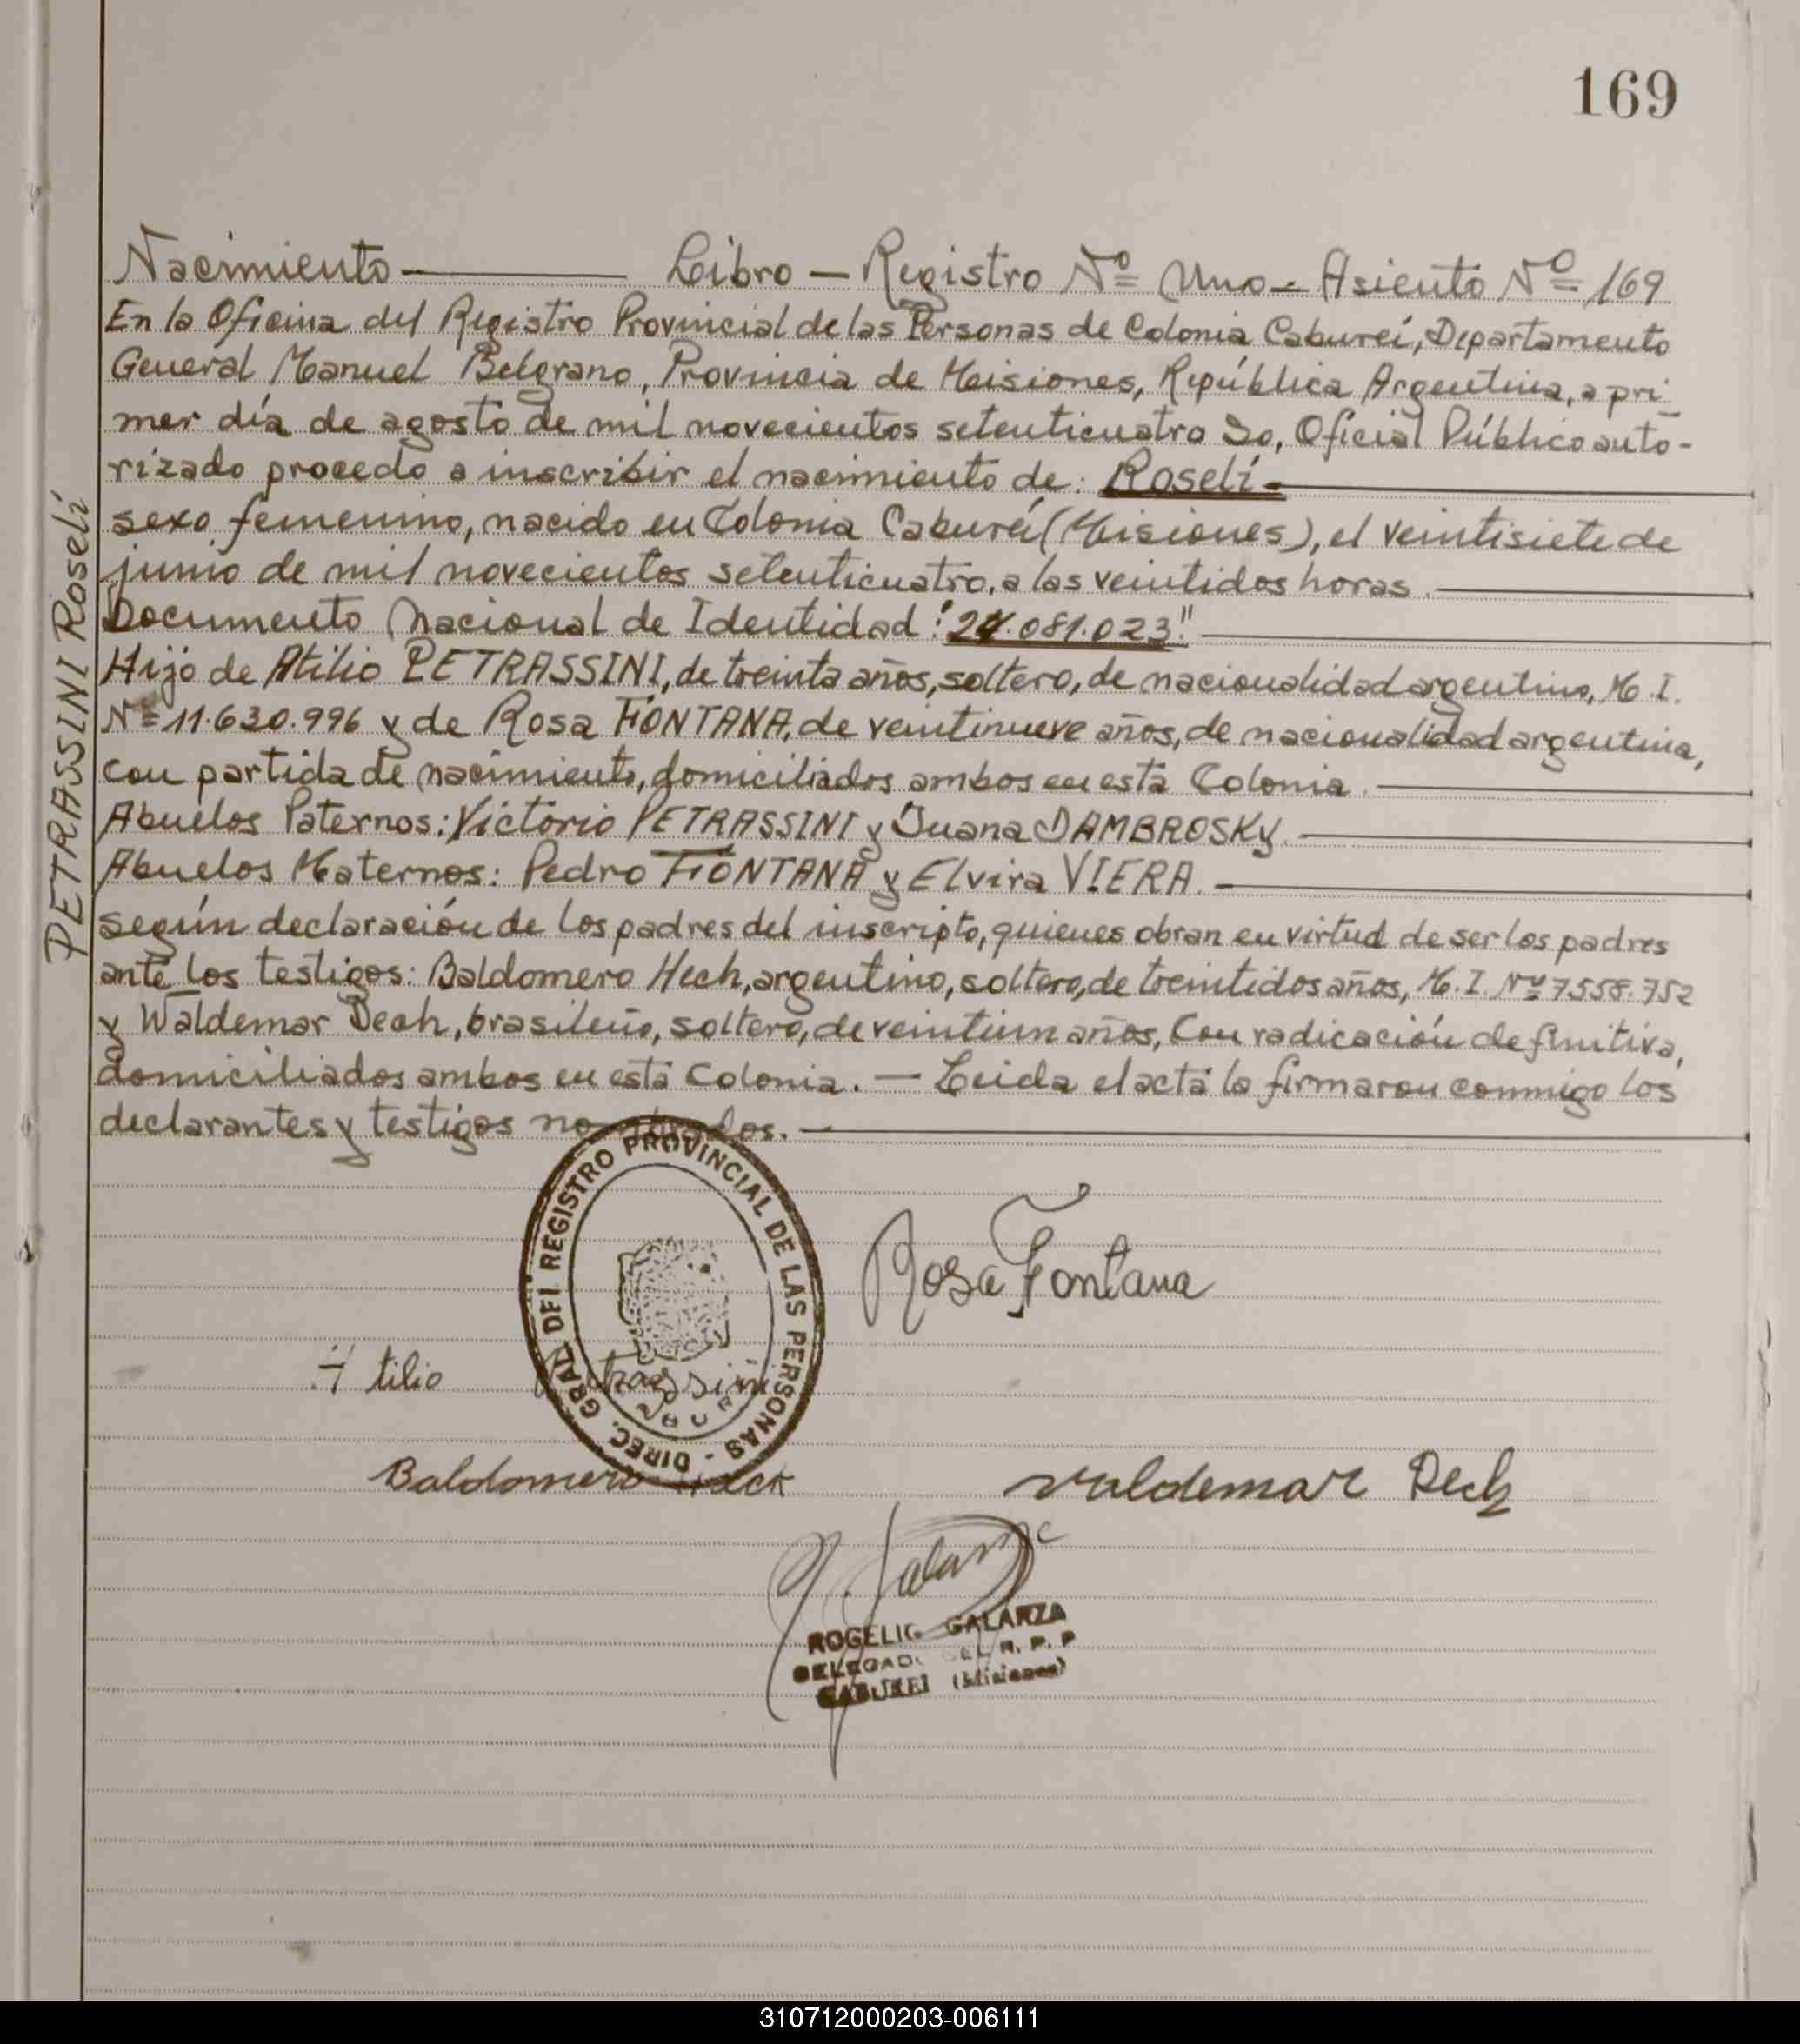 169
PETRASSINI Roselí
Nacimiento — Libro — Registro Nº Uno — Asiento Nº 169
En la Oficina del Registro Provincial de las Personas de Colonia Cabureí, Departamento
General Manuel Belgrano, Provincia de Misiones, República Argentina, a pri-
mer día de agosto de mil novecientos setenticuatro Yo, Oficial Público auto-
rizado procedo a inscribir el nacimiento de: Roselí.—
sexo femenino, nacido en Colonia Cabureí (Misiones), el veintisiete de
junio de mil novecientos setenticuatro, a las veintidos horas.—
Documento Nacional de Identidad: "24.081.023".—
Hijo de Atilio PETRASSINI, de treinta años, soltero, de nacionalidad argentino, M.I.
Nº 11.630.996 y de Rosa FONTANA, de veintinueve años, de nacionalidad argentina,
con partida de nacimiento, domiciliados ambos en esta Colonia.—
Abuelos Paternos: Victorio PETRASSINI y Juana DAMBROSKY.—
Abuelos Maternos: Pedro FONTANA y Elvira VIERA.—
según declaración de los padres del inscripto, quienes obran en virtud de ser los padres
ante los testigos: Baldomero Hech, argentino, soltero, de treintidos años, M.I. Nº 7558.752
y Waldemar Dech, brasileño, soltero, de veintiun años, Con radicación definitiva,
domiciliados ambos en esta Colonia. — Leida el acta la firmaron conmigo los
declarantes y testigos nombrados.—
DIREC. GRAL. DEL REGISTRO PROVINCIAL DE LAS PERSONAS -
Rosa Fontana
Atilio Petrassini
Baldomero Heck
Valdemar Dech
ROGELIO GALARZA
DELEGADO DEL R. P. P
CABUREI (Misiones)
310712000203-006111